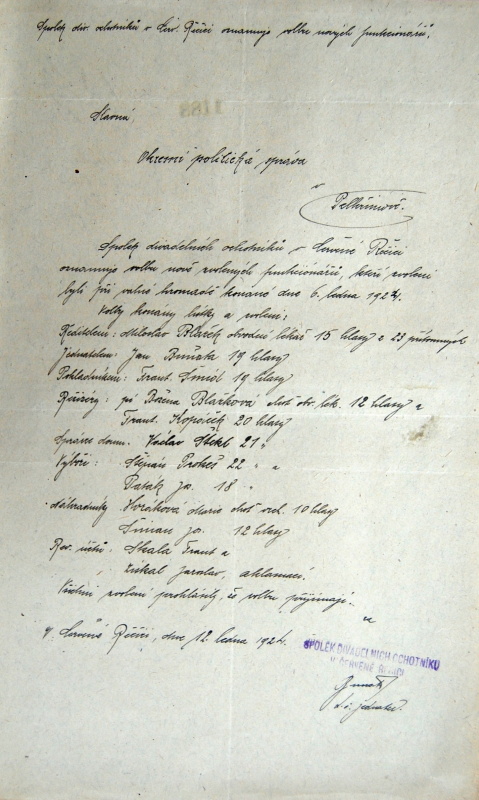 Spolek div. ochotníků v Červ. Řečici oznamuje volbu nových funkcionářů.
Slavná
Okresní politická správa
v
Pelhřimově.
Spolek divadelních ochotníků v Červené Řečici
oznamuje volbu nově zvolených funkcionářů, kteří zvoleni
byli při valné hromadě konané dne 6. ledna 1924.
Volby konány lístky a zvoleni:
Ředitelem: Miloslav Blažek obvodní lékař 15 hlasy z 23 přítomných
Jednatelem: Jan 19 hlasy
Pokladníkem: Frant. Šmíd 19 hlasy
Režisery: pí Božena Blažková choť obv. lék. 12 hlasy a
Frant. Kopáček 20 hlasy
Správce domu: Václav Štekl 21 "
Výboři: Štěpán Prokeš 22 " "
Paták Jos. 18 "
Náhradníky Horáková Marie choť 10 hlasy
Šiman Jos. 12 hlasy
Rev. účtů: Skala Frant a
Získal Jaroslav, aklamací.
Všichni zvolení prohlásili, že volbu přijímají.
V Červené Řečici, dne 12. ledna 1924.
SPOLEK DIVADELNÍCH OCHOTNÍKŮ
V ČERVENÉ ŘEČICI
t. č. jednatel.